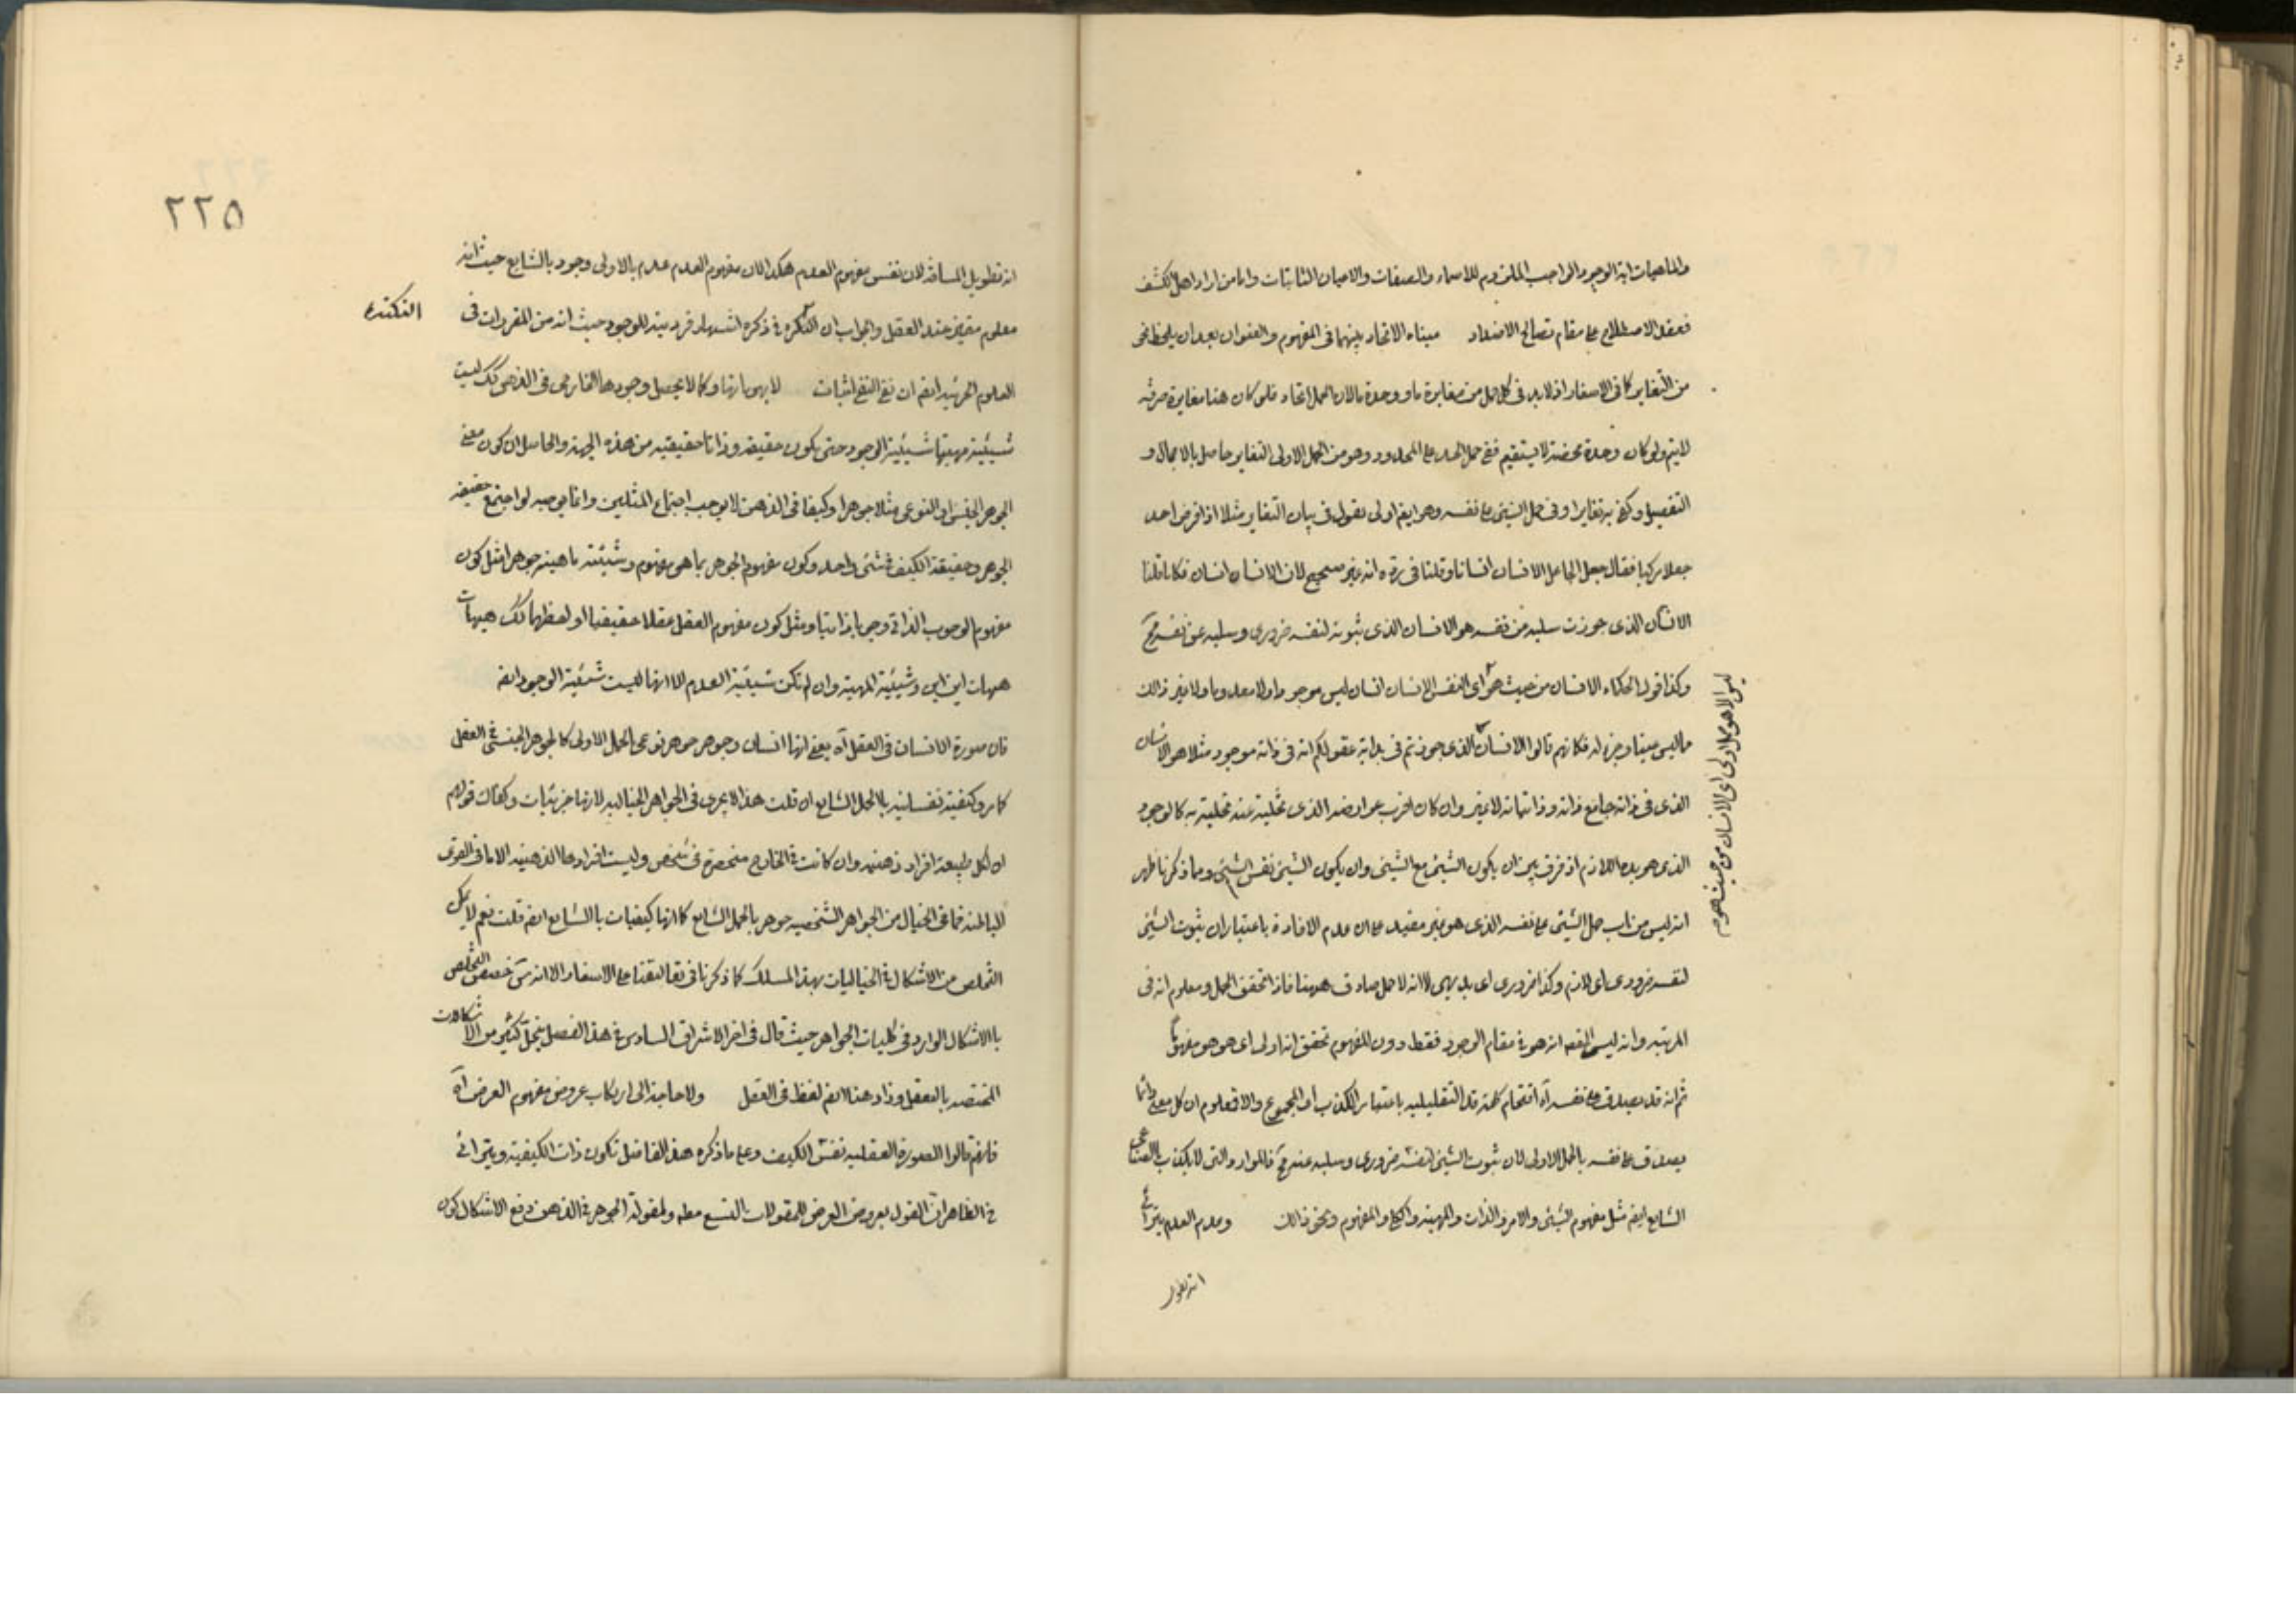 والماهيات اية الوجود الواجب الملزوم للاسماء والصفات والاعيان الثابتات وانا من اراد اهل الكشف
فعقد الاصطلاح على مقام تصالح الاضداد مبناه الاتحاد بينهما فى المفهوم والعنوان بعد ان يلحظ نحو
من التغاير كما فى الاسفار اذ لا بد فى كل حمل من مغايرة ما ووحدة ما لان الحمل اتحاد فلو كان هنا مغايرة صرفة
لايتم ولو كان وحدة محضة لا يستقيم ففى حمل الحد على المحدود وهو من الحمل الاولى التغاير حاصل بالاجمال و
التفصيل وكفى به تغايرا وفى حمل الشيئ على نفسه وهو ايضا اولى نقول فى بيان التغاير مثلا اذا فرض احد
جعلا تركيبا فقال جعل الجاعل الانسان انسانا وقلنا فى رده انه غير صحيح لان الانسان انسان فكانا قلنا
الانسان الذى جوزت سلبه عن نفسه هو الانسان الذى ثبوته لنفسه ضرورى وسلبه عن نفسه مح
وكذا قول الحكماء الانسان من حيث هو اى النفس الانسان انسان ليس موجودا ولا معدوما ولا غير ذالك
ما ليس عينا وجزء له فكانهم قالوا الانسان الذى جوزتم فى بداية عقولكم انه فى ذاته موجود مثلا هو الانسان
الذى فى ذاته جامع ذاته وذاتياته لا غير وان كان اقرب عوارضه الذى تخليته عنه تحليته به كالوجود
الذى هو بده اللازم اذ فرق بين ان يكون الشيئ مع الشيئ وان يكون الشيئ نفس الشيئ وما ذكرنا ظهر
انه ليس من باب حمل الشيئ على نفسه الذى هو غير مفيد على ان عدم الافادة باعتبار ان ثبوت الشيئ
لنفسه ضرورى اى لازم وكذا ضرورى اى بديهى لا انه لا حمل صادق هيهنا فاذا تحقق الحمل ومعلوم انه فى
المرتبه وانه ليس القصد انه هو فى مقام الوجود فقط دون المفهوم تحقق انه اولى اى هو هو مفهوما
ثم انه قد يصدق على نفسه آه اقتحام كلمة قد التقليليه باعتبار الكذب او المجموع والا فمعلوم ان كل معنى دائما
يصدق على نفسه بالحمل الاولى لان ثبوت الشيئ لنفسه ضرورى وسلبه عنه مح فالموارد التى لا يكذب بالصناعى
الشايع ايضا مثل مفهوم الشيئ والامر والذات والمهية والكلى والمفهوم ونحو ذالك وعدم العدم يترائى
انه تطويل
ليس الا هو حمل اولى اى الانسان من حيث هو
٢٢٥
انه تطويل المسافة لان نفس مفهوم العدم هكذا لان مفهوم العدم عدم بالاولى وجود بالشايع حيث انه
معلوم متميز عند العقل والجواب ان النكتة فى ذكره اشتهار فرديته للوجود حيث انه من المقررات فى
العلوم العربيه ايضا ان نفى النفى اثبات لا بهوياتها وكما لا يحصل وجودها الخارجى فى الذهن كك ليست
شيئية مهيتها شيئية الوجود حتى يكون حقيقة وذاتا حقيقيه من هذه الجهة والحاصل ان كون معنى
الجوهر الجنسى او النوعى مثلا جوهرا وكيفا فى الذهن لا يوجب اجتماع المثلين وانما يوجبه لو اجتمع حقيقة
الجوهر وحقيقة الكيف فى شئ واحد وكون مفهوم الجوهر بما هو مفهوم وشيئية ماهيته جوهرا مثل كون
مفهوم الوجوب الذاتى وجوبا ذاتيا ومثل كون مفهوم العقل عقلا حقيقيا او لفظهما كك هيهات
هيهات اين اين وشيئية المهية وان لم تكن شيئية العدم الا انها ليست شيئية الوجود ايضا
فان صورة الانسان فى العقل آه يعنى انها انسان وجوهر جوهر نوعى بالحمل الاولى كالجوهر الجنسى فى العقل
كما مر وكيفية نفسانيه بالحمل الشايع ان قلت هذا لا يجرى فى الجواهر الخياليه لانها جزئيات وكفاك قولهم
ان لكل طبيعة افراد ذهنيه وان كانت فى الخارج منحصرة فى شخص وليست افرادها الذهنيه الا ما فى القوى
الباطنه فما فى الخيال من الجواهر الشخصيه جوهر بالحمل الشايع كما انها كيفيات بالشايع ايضا قلت نعم لا يمكن
التخلص من الاشكال فى الخياليات بهذا المسلك كما ذكرنا فى تعاليقنا على الاسفار الا انه سَ خصص التخلص
بالاشكال الوارد فى كليات الجواهر حيث قال فى اخر الاشراق السادس فى هذا الفصل ينحل كثير من الاشكالات
المختصه بالتعقل وزاد هنا ايضا لفظ فى العقل ولا حاجة الى ارتكاب عروض مفهوم العرض آه
فانهم قالوا الصورة العقليه نفس الكيف وعلى ما ذكره هذا الفاضل تكون ذات الكيفية ويترائى
فى الظاهر ان القول بعروض العرض للمقولات التسع مطه ولمقولة الجوهر فى الذهن دفع الاشكال كون